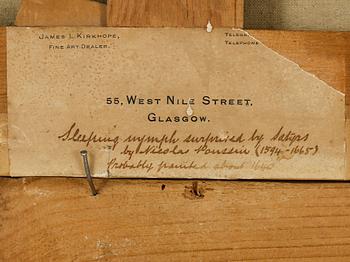 JAMES L. KIRKHOPE,
FINE ART DEALER.
TELEG
TELEPHONE
55, WEST NILE STREET,
GLASGOW.
Sleeping nymph surprised by Satyrs
by Nicolas Poussin (1594-1665)
Probably painted about